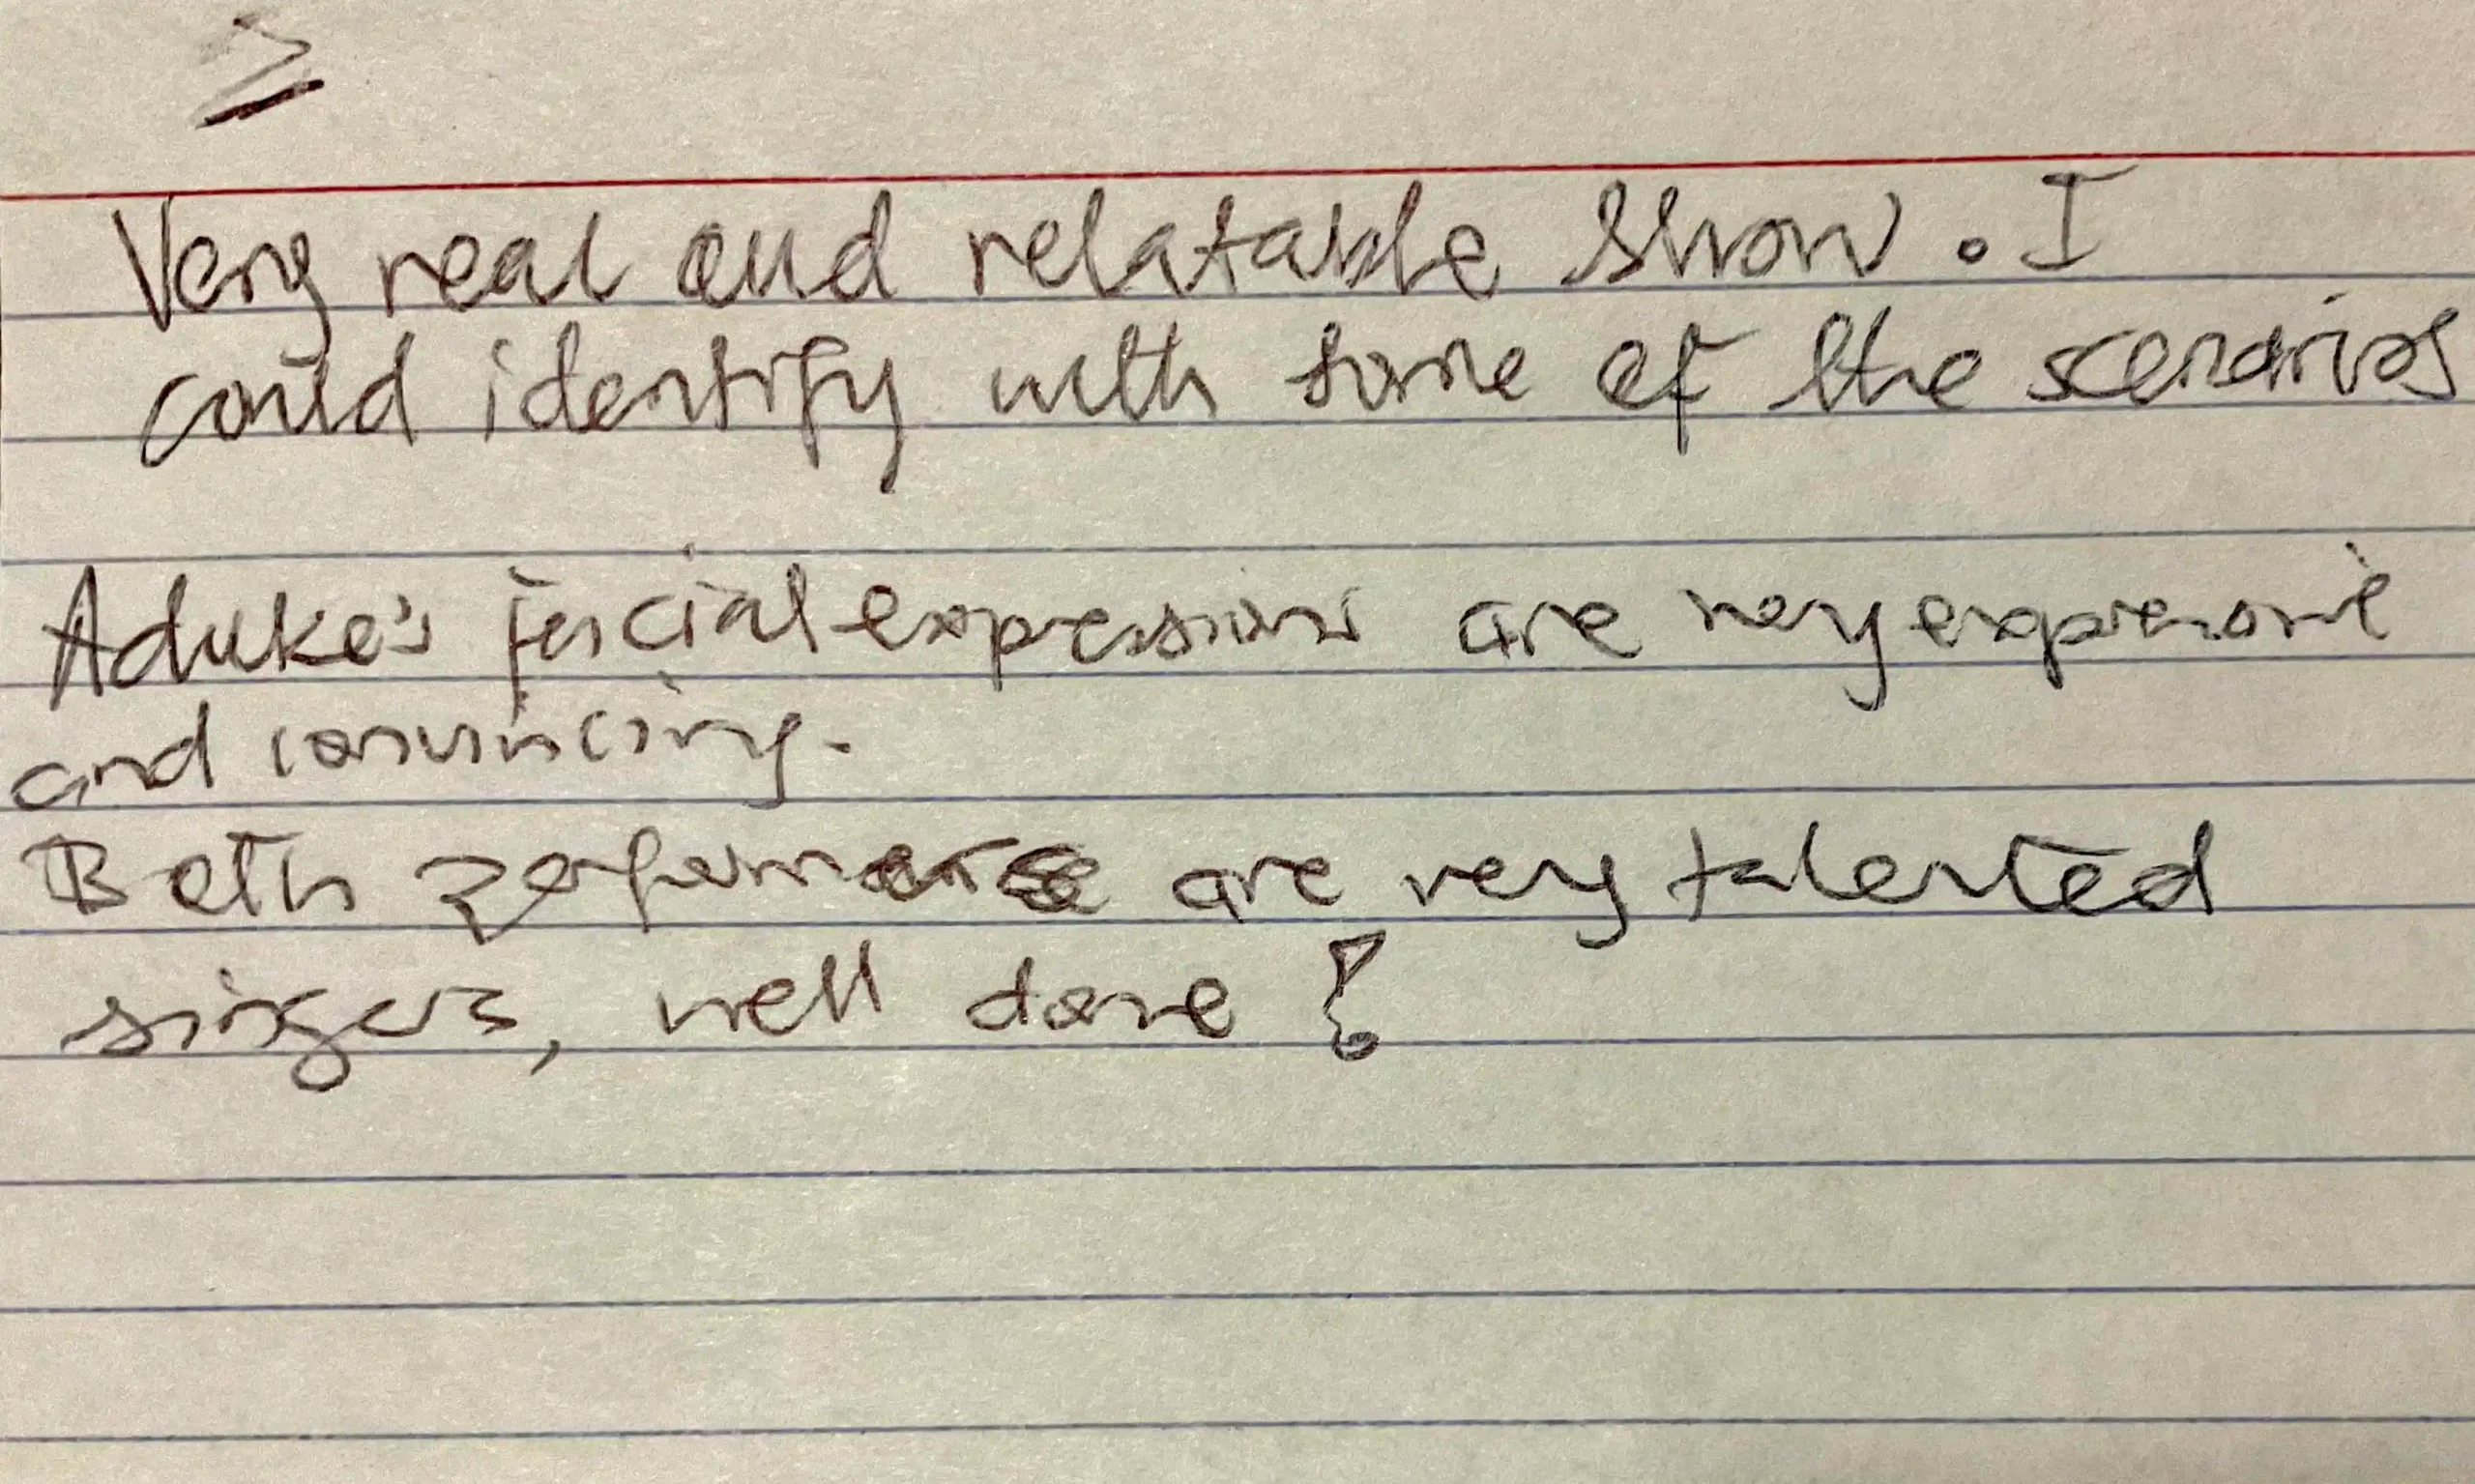 Very real and relatable show. I
could identify with some of the scenarios
Aduke's facial expressions are very expressive
and convincing.
Both are very talented
singers, well done!